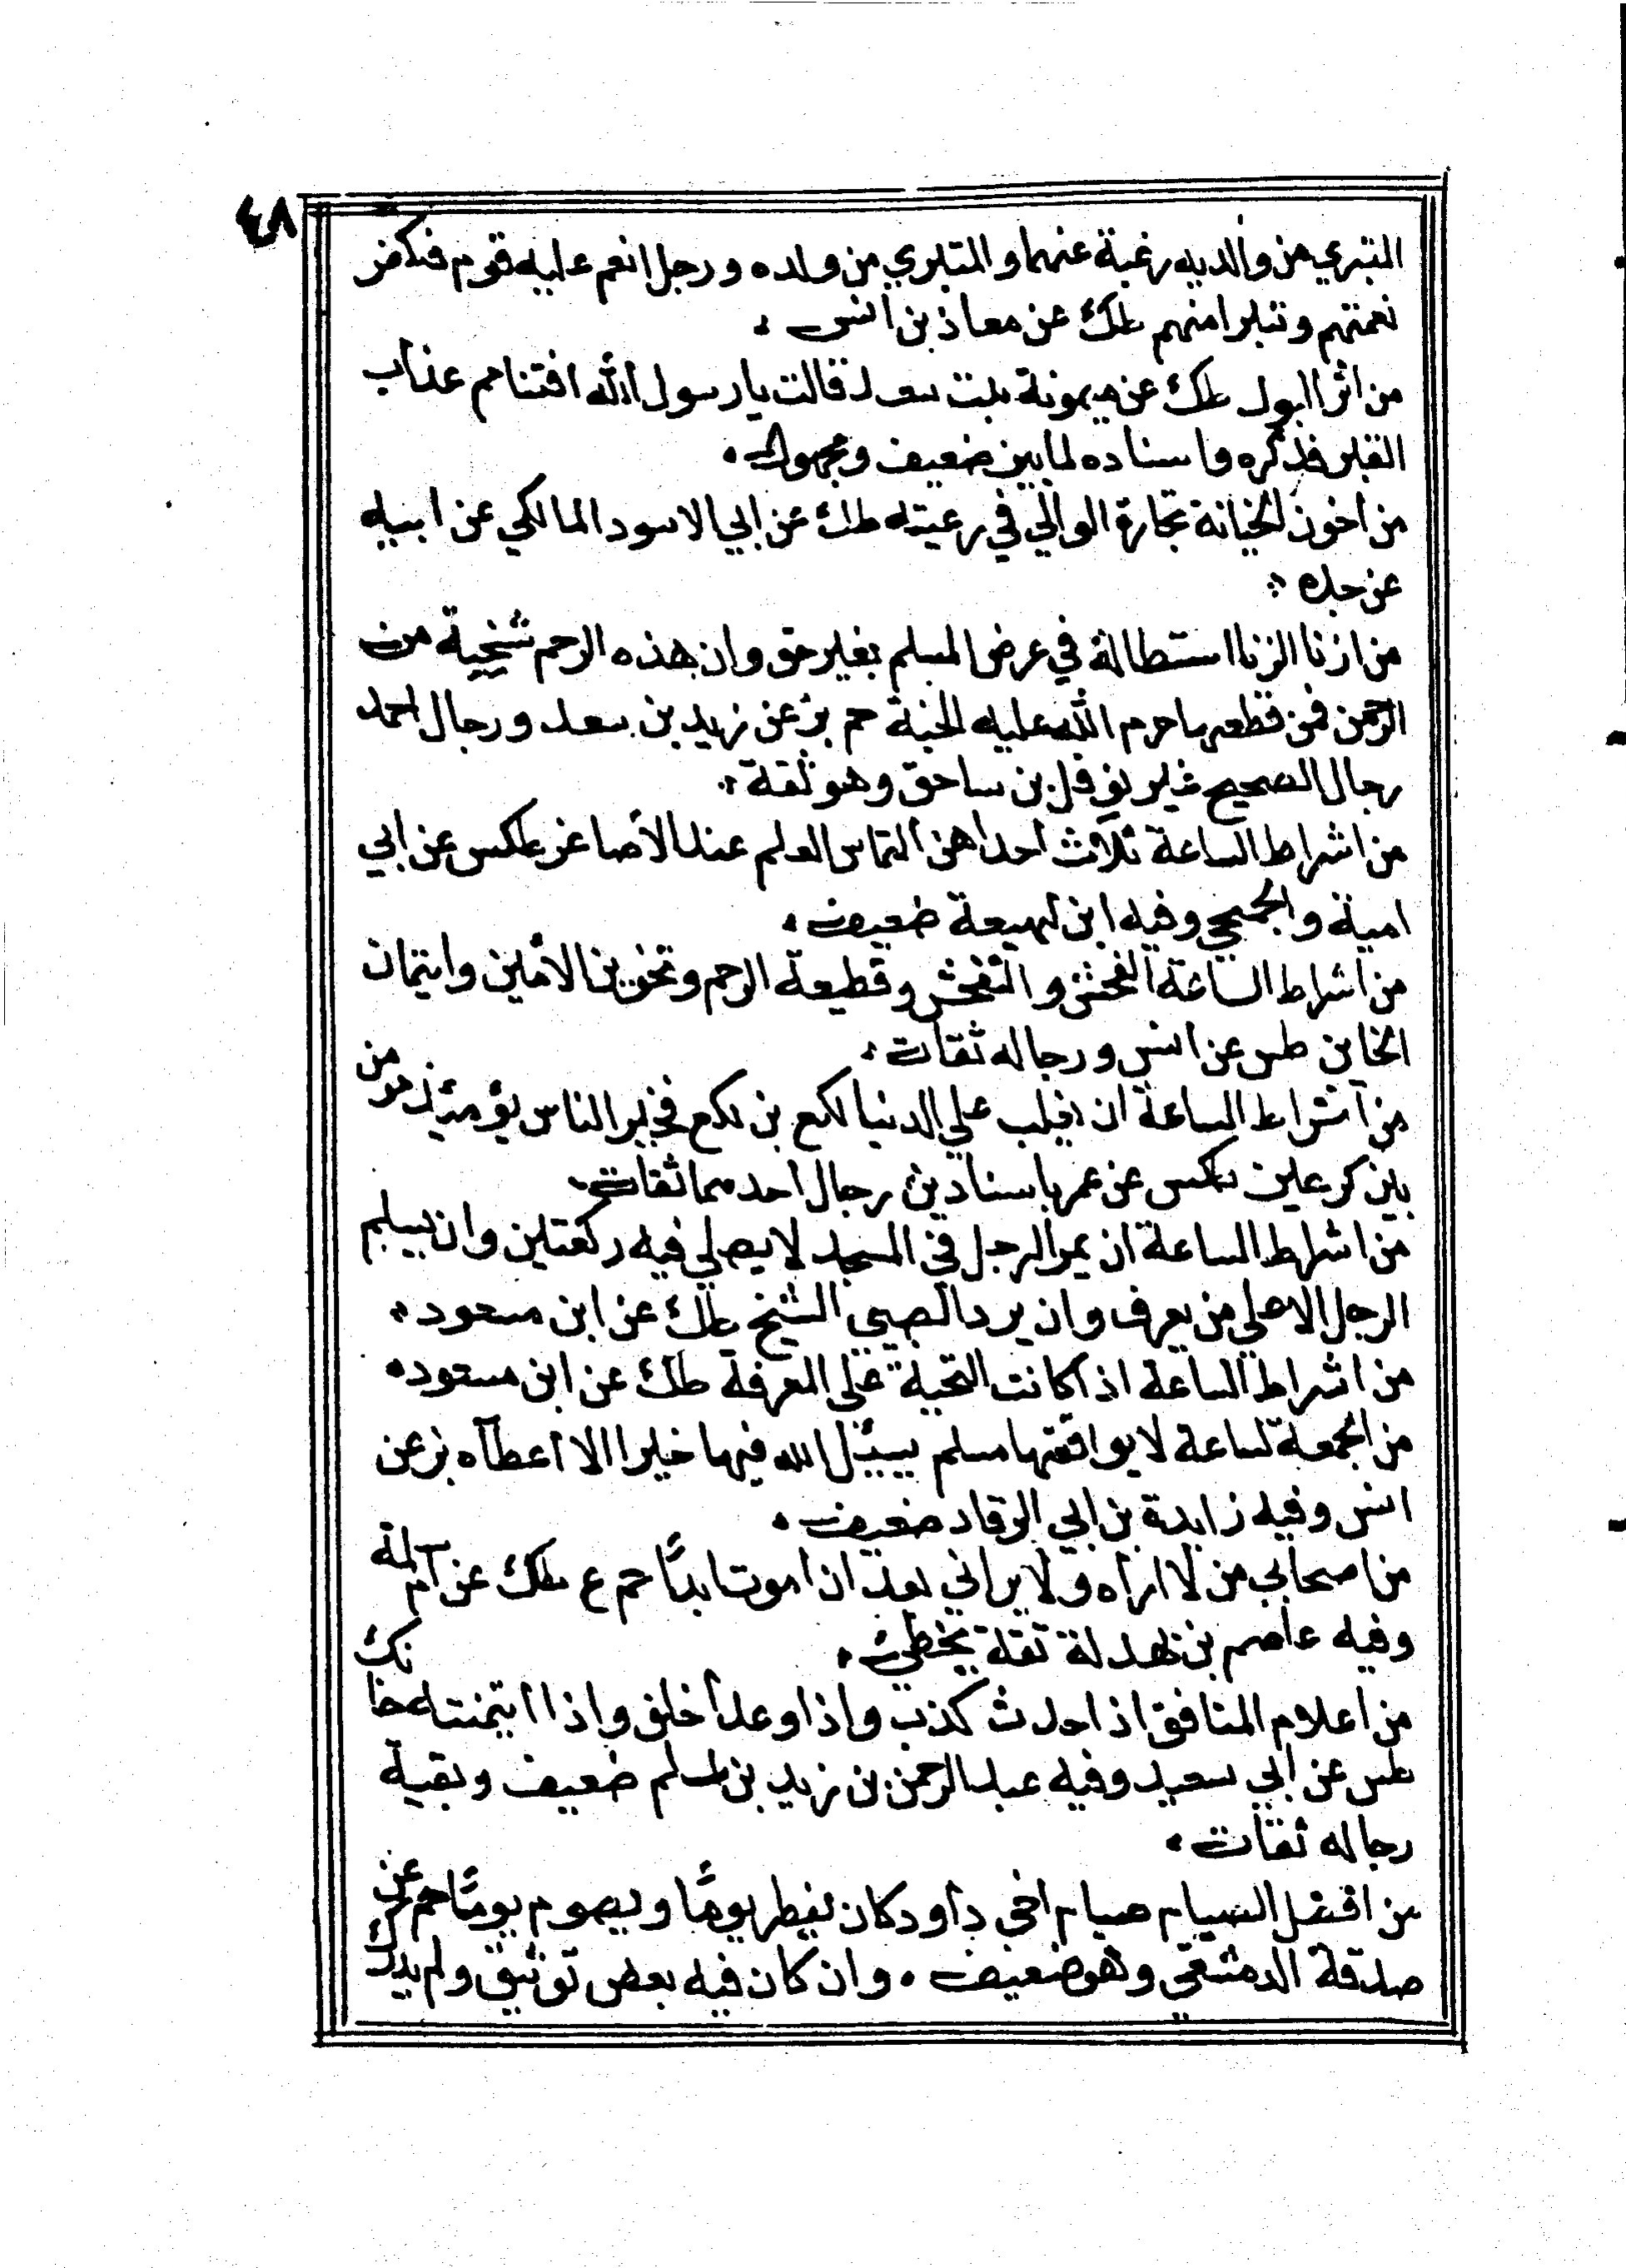 ٤٨
المتبري من والديه رغبة عنهما والمتبري من ولده ورجل انعم عليه قوم فكفر
نعمتهم وتبرا منهم طك عن معاذ بن انس
من اثر البول طك عن ميمونة بنت سعد قالت يا رسول الله افتنا مم عذاب
القبر فذكره واسناده لما بين ضعيف ومجهول
من اخون الخيانة تجارة الوالي في رعيته طك عن ابي الاسود المالكي عن ابيه
عن جده
من ازنا الزنا استطالة في عرض المسلم بغير حق وان هذه الرحم شجية من
الرحمن فمن قطعها حرم الله عليه الجنة حم بز عن زيد بن سعد ورجال احمد
رجال الصحيح غير نوفل بن ساحق وهو ثقة
من اشراط الساعة ثلاث احداهن التماس العلم عند الأصاغر طكس عن ابي
امية والجمحي وفيه ابن لهيعة ضعيف
من اشراط الساعة الفحش والتفحش وقطيعة الرحم وتخوين الأمين وايتمان
الخاين طس عن انس ورجاله ثقات
من اشراط الساعة ان يغلب علي الدنيا لكع بن لكع فخير الناس يؤميئذ مومن
بين كرعين طكس عن عمر باسنادين رجال احدهما ثقات
من اشراط الساعة ان يمر الرجل في المسجد لا يصلي فيه ركعتين وان يسلم
الرجل الا علي من يعرف وان يرد الصبي الشيخ طك عن ابن مسعود
من اشراط الساعة اذا كانت التحية على المعرفة طك عن ابن مسعود
من الجمعة لساعة لا يوافقها مسلم يسئل الله فيها خيرا الا أعطآه بز عن
انس وفيه زايدة بن ابي الرقاد ضعيف
من اصحابي من لا اراه ولا يراني بعد ان اموت ابدًا حم ع طك عن ام سلمة
وفيه عاصم بن بهدلة ثقة يخطئ
من اعلام المنافق اذا حدث كذب واذا وعد أخلف واذا ايتمنته خانك
طس عن ابي سعيد وفيه عبد الرحمن بن زيد بن اسلم ضعيف وبقية
رجاله ثقات
من افضل الصيام صيام اخي داود كان يفطر يومًا ويصوم يومًا حم عن
صدقة الدمشقي وهو ضعيف وان كان فيه بعض توثيق ولم يدرك